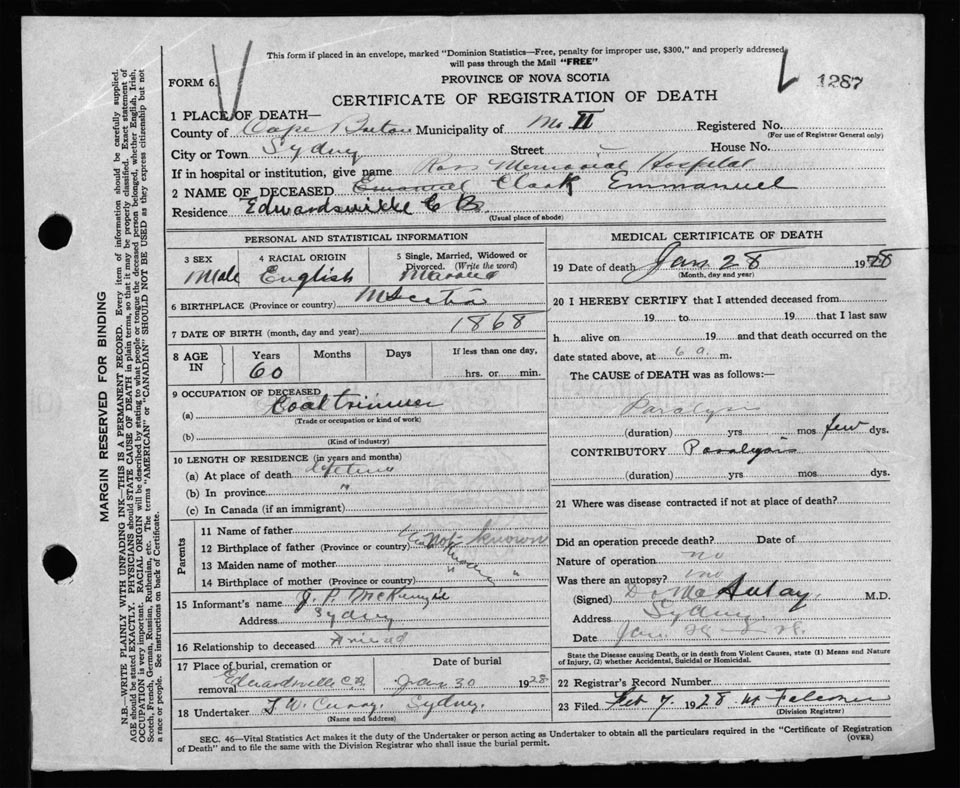 This form if placed in an envelope, marked "Dominion Statistics—Free, penalty for improper use, $300," and properly addressed
will pass through the Mail "FREE"
FORM 6.
PROVINCE OF NOVA SCOTIA
1287
CERTIFICATE OF REGISTRATION OF DEATH
1 PLACE OF DEATH—
County of Cape Breton Municipality of No II Registered No.
(For use of Registrar General only)
City or Town Sydney Street House No.
If in hospital or institution, give name Ross Memorial Hospital
2 NAME OF DECEASED Emanuel Clark Emmanuel
Residence Edwardsville C B.
(Usual place of abode)
PERSONAL AND STATISTICAL INFORMATION
3 SEX 4 RACIAL ORIGIN 5 Single, Married, Widowed or
Divorced. (Write the word)
Male English Married
6 BIRTHPLACE (Province or country) N Scotia
7 DATE OF BIRTH (month, day and year) 1868
8 AGE IN Years Months Days If less than one day,
60 hrs. or min.
9 OCCUPATION OF DECEASED
(a) Coal trimmer
(Trade or occupation or kind of work)
(b)
(Kind of industry)
10 LENGTH OF RESIDENCE (in years and months)
(a) At place of death lifetime
(b) In province "
(c) In Canada (if an immigrant)
Parents
11 Name of father not known
12 Birthplace of father (Province or country)
13 Maiden name of mother
14 Birthplace of mother (Province or country) " "
15 Informant's name J. P. McKenzie
Address Sydney
16 Relationship to deceased Friend
17 Place of burial, cremation or removal Date of burial
Edwardsville C.B. Jan 30 1928
18 Undertaker T W Curry, Sydney.
(Name and address)
MEDICAL CERTIFICATE OF DEATH
19 Date of death Jan 28 1928
(Month, day and year)
20 I HEREBY CERTIFY that I attended deceased from
19 to 19 that I last saw
h alive on 19 and that death occurred on the
date stated above, at 6 a. m.
The CAUSE of DEATH was as follows:—
Paralysis
(duration) yrs mos few dys.
CONTRIBUTORY Paralysis
(duration) yrs mos dys.
21 Where was disease contracted if not at place of death?
Did an operation precede death? Date of
Nature of operation no
Was there an autopsy? no
(Signed) Dr McAulay. M.D.
Address Sydney
Date Jan.
State the Disease causing Death, or in death from Violent Causes, state (1) Means and Nature
of Injury, (2) whether Accidental, Suicidal or Homicidal.
22 Registrar's Record Number
23 Filed Feb 7. 1928 Falconer
(Division Registrar)
SEC. 46—Vital Statistics Act makes it the duty of the Undertaker or person acting as Undertaker to obtain all the particulars required in the "Certificate of Registration
of Death" and to file the same with the Division Registrar who shall issue the burial permit.
(OVER)
MARGIN RESERVED FOR BINDING
N.B.—WRITE PLAINLY WITH UNFADING INK—THIS IS A PERMANENT RECORD. Every item of information should be carefully supplied.
AGE should be stated EXACTLY. PHYSICIANS should STATE CAUSE OF DEATH in plain terms, so that it may be properly classified. Exact statement of
OCCUPATION is very important. RACIAL ORIGIN will be described by stating to what people or tongue the deceased person belonged, whether English, Irish,
Scotch, French, German, Russian, Ruthenian, etc. The terms "AMERICAN" or "CANADIAN" SHOULD NOT BE USED as they express citizenship but not
a race or people. See instructions on back of Certificate.